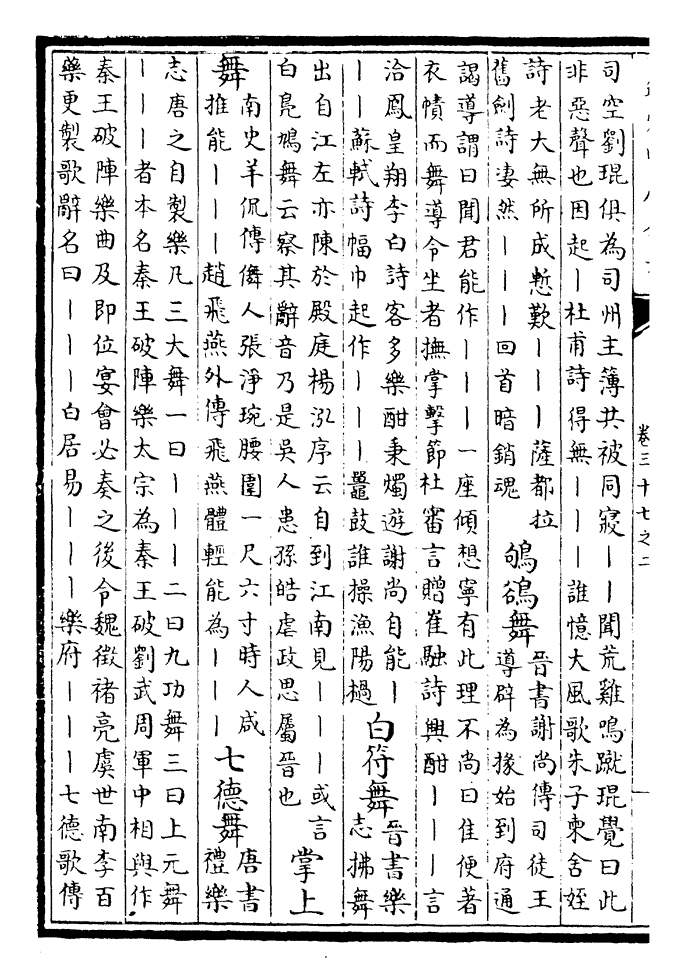 卷三十七之二
司空劉琨俱為司州主簿共被同寢丨丨聞荒雞鳴蹴琨覺曰此
非惡聲也因起丨杜甫詩得無丨丨丨誰憶大風歌朱子柬舍姪
詩老大無所成慙歎丨丨丨薩都拉
舊劍詩淒然丨丨丨回首暗銷魂
鴝鵒舞
晉書謝尚傳司徒王
導辟為掾始到府通
謁導謂曰聞君能作丨丨丨一座傾想寧有此理不尚曰佳便著
衣幘而舞導令坐者撫掌擊節杜審言贈崔融詩興酣丨丨丨言
洽鳳皇翔李白詩客多樂酣秉燭遊謝尚自能丨
丨丨蘇軾詩幅巾起作丨丨丨疊鼓誰操漁陽檛
白符舞
晉書樂
志拂舞
出自江左亦陳於殿庭楊泓序云自到江南見丨丨丨或言
白鳧鳩舞云察其辭音乃是吳人患孫皓虐政思屬晉也
掌上
舞
南史羊侃傳儛人張淨琬腰圍一尺六寸時人咸
推能丨丨丨趙飛燕外傳飛燕體輕能為丨丨丨
七德舞
唐書
禮樂
志唐之自製樂凡三大舞一曰丨丨丨二曰九功舞三曰上元舞
丨丨丨者本名秦王破陣樂太宗為秦王破劉武周軍中相與作
秦王破陣樂曲及即位宴會必奏之後令魏徵褚亮虞世南李百
藥更製歌辭名曰丨丨丨白居易丨丨丨樂府丨丨丨七德歌傳